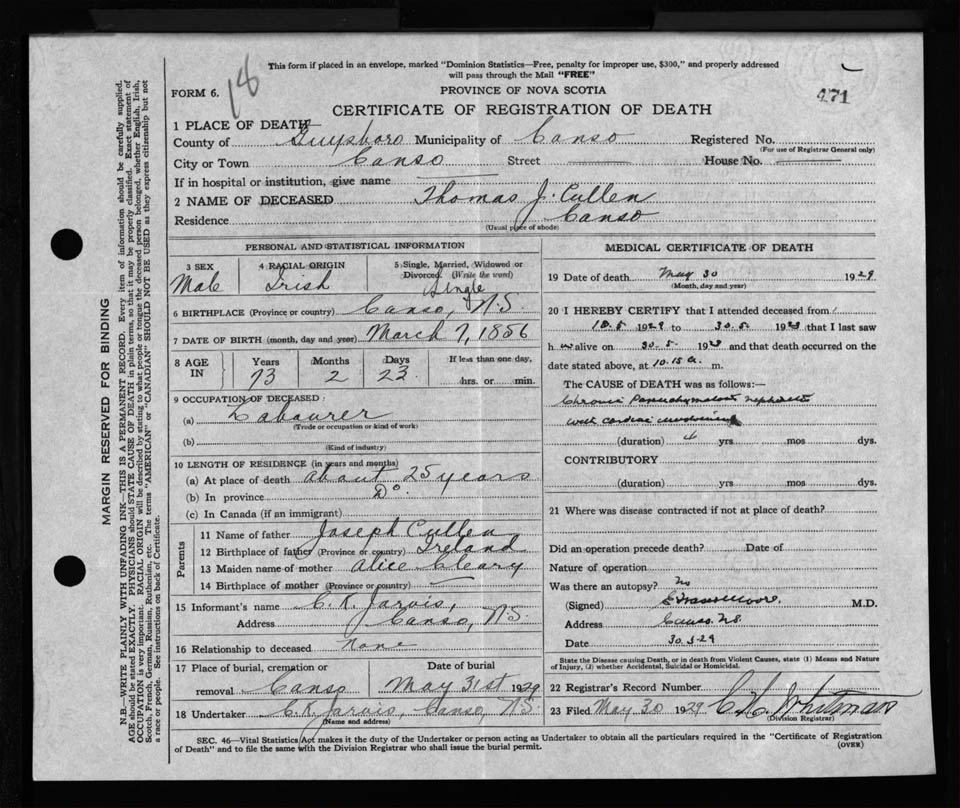 This form if placed in an envelope, marked "Dominion Statistics—Free, penalty for improper use, $300," and properly addressed
will pass through the Mail "FREE"
18
471
FORM 6.
PROVINCE OF NOVA SCOTIA
CERTIFICATE OF REGISTRATION OF DEATH
1 PLACE OF DEATH
County of Guysboro Municipality of Canso Registered No.
(For use of Registrar General only)
City or Town Canso Street House No.
If in hospital or institution, give name
2 NAME OF DECEASED Thomas J. Cullen
Residence Canso
(Usual place of abode)
PERSONAL AND STATISTICAL INFORMATION
3 SEX 4 RACIAL ORIGIN 5 Single, Married, Widowed or Divorced (Write the word)
Male Irish Single
6 BIRTHPLACE (Province or country) Canso, N.S.
7 DATE OF BIRTH (month, day and year) March 7, 1856
8 AGE IN Years Months Days If less than one day,
73 2 23 hrs. or min.
9 OCCUPATION OF DECEASED
(a) Labourer
(Trade or occupation or kind of work)
(b)
(Kind of industry)
10 LENGTH OF RESIDENCE (in years and months)
(a) At place of death about 25 years
(b) In province Do.
(c) In Canada (if an immigrant)
Parents
11 Name of father Joseph Cullen
12 Birthplace of father (Province or country) Ireland
13 Maiden name of mother Alice Cleary
14 Birthplace of mother (Province or country)
15 Informant's name C. K. Jarvis,
Address Canso, N.S.
16 Relationship to deceased none
17 Place of burial, cremation or Date of burial
removal Canso May 31st 1929
18 Undertaker C. K. Jarvis, Canso, N.S.
(Name and address)
MEDICAL CERTIFICATE OF DEATH
19 Date of death May 30 1929
(Month, day and year)
20 I HEREBY CERTIFY that I attended deceased from
5 1929 to 30.5. 1929 that I last saw
h im alive on 30.5. 1929 and that death occurred on the
date stated above, at 10.15 a. m.
The CAUSE OF DEATH was as follows:—
Chronic Parenchymatous nephritis
with cardiac
(duration) yrs. mos. dys.
CONTRIBUTORY
(duration) yrs. mos. dys.
21 Where was disease contracted if not at place of death?
Did an operation precede death? Date of
Nature of operation
Was there an autopsy? No
(Signed) Moore. M.D.
Address Canso. N.S.
Date 30.5-29
State the Disease causing Death, or in death from Violent Causes, state (1) Means and Nature
of Injury, (2) whether Accidental, Suicidal or Homicidal.
22 Registrar's Record Number
23 Filed May 30 1929 C. H. Whitman
(Division Registrar)
SEC. 46—Vital Statistics Act makes it the duty of the Undertaker or person acting as Undertaker to obtain all the particulars required in the "Certificate of Registration
of Death" and to file the same with the Division Registrar who shall issue the burial permit.
(OVER)
MARGIN RESERVED FOR BINDING
N.B.—WRITE PLAINLY WITH UNFADING INK—THIS IS A PERMANENT RECORD. Every item of information should be carefully supplied.
AGE should be stated EXACTLY. PHYSICIANS should STATE CAUSE OF DEATH in plain terms, so that it may be properly classified. Exact statement of
OCCUPATION is very important. RACIAL ORIGIN will be described by stating to what people or tongue the deceased person belonged, whether English, Irish,
Scotch, French, German, Russian, Ruthenian, etc. The terms "AMERICAN" or "CANADIAN" SHOULD NOT BE USED as they express citizenship but not
a race or people. See instructions on back of Certificate.